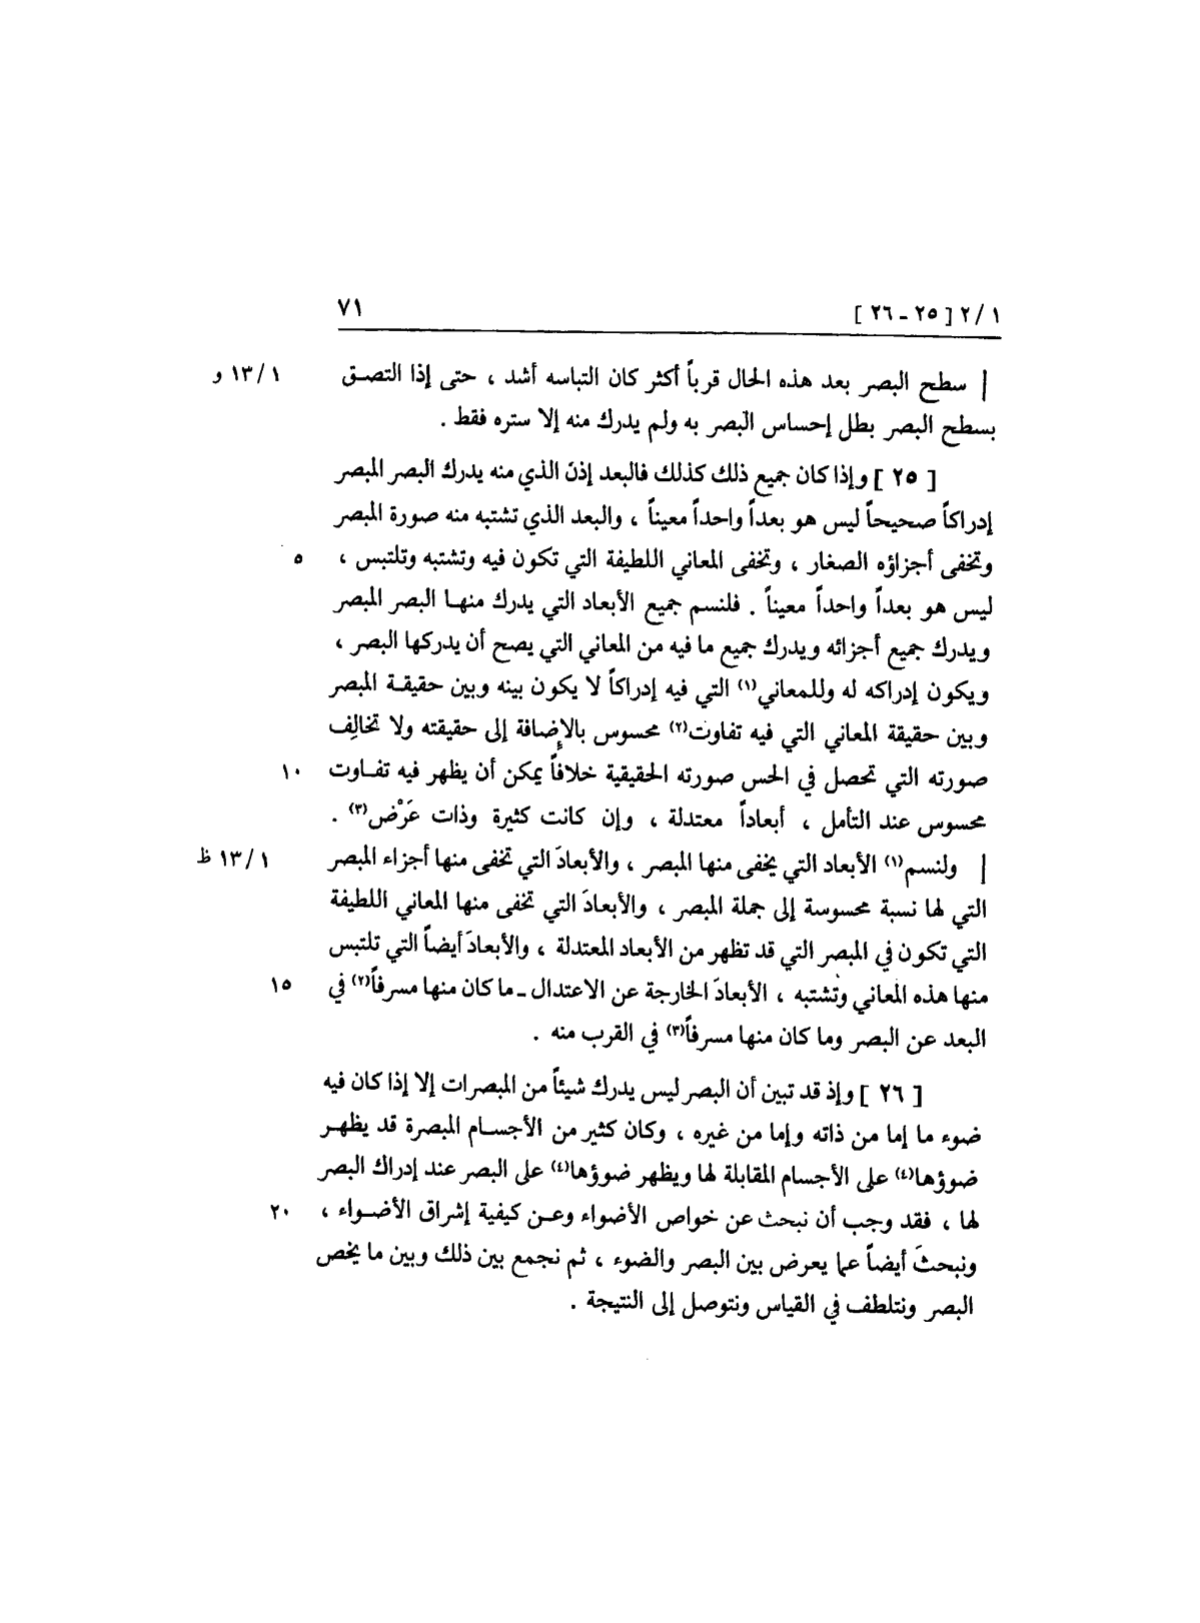 ١ / ٢ [ ٢٥ - ٢٦ ] ٧١
| سطح البصر بعد هذه الحال قرباً أكثر كان التباسه أشد ، حتى إذا التصـق ١ / ١٣ و
بسطح البصر بطل إحساس البصر به ولم يدرك منه إلا ستره فقط .
[ ٢٥ ] وإذا كان جميع ذلك كذلك فالبعد إذن الذي منه يدرك البصر المبصر
إدراكاً صحيحاً ليس هو بعداً واحداً معيناً ، والبعد الذي تشتبه منه صورة المبصر
وتخفى أجزاؤه الصغار ، وتخفى المعاني اللطيفة التي تكون فيه وتشتبه وتلتبس ، ٥
ليس هو بعداً واحداً معيناً . فلنسم جميع الأبعاد التي يدرك منهـا البصر المبصر
ويدرك جميع أجزائه ويدرك جميع ما فيه من المعاني التي يصح أن يدركها البصر ،
ويكون إدراكه له وللمعاني(١) التي فيه إدراكاً لا يكون بينه وبين حقيقـة المبصر
وبين حقيقة المعاني التي فيه تفاوت(٢) محسوس بالإضافة إلى حقيقته ولا تخالِف
صورته التي تحصل في الحس صورته الحقيقية خلافاً يمكن أن يظهر فيه تفـاوت ١٠
محسوس عند التأمل ، أبعاداً معتدلة ، وإن كانت كثيرة وذات عَرْض(٣) .
| ولنسم(١) الأبعاد التي يخفى منها المبصر ، والأبعادَ التي تخفى منها أجزاء المبصر ١ / ١٣ ظ
التي لها نسبة محسوسة إلى جملة المبصر ، والأبعادَ التي تخفى منها المعاني اللطيفة
التي تكون في المبصر التي قد تظهر من الأبعاد المعتدلة ، والأبعادَ أيضاً التي تلتبس
منها هذه المعاني وتشتبه ، الأبعادَ الخارجة عن الاعتدال ـ ما كان منها مسرفاً(٢) في ١٥
البعد عن البصر وما كان منها مسرفاً(٣) في القرب منه .
[ ٢٦ ] وإذ قد تبين أن البصر ليس يدرك شيئاً من المبصرات إلا إذا كان فيه
ضوء ما إما من ذاته وإما من غيره ، وكان كثير من الأجسـام المبصرة قد يظهـر
ضوؤها(٤) على الأجسام المقابلة لها ويظهر ضوؤها(٤) على البصر عند إدراك البصر
لها ، فقد وجب أن نبحث عن خواص الأضواء وعـن كيفية إشراق الأضـواء ، ٢٠
ونبحثَ أيضاً عما يعرض بين البصر والضوء ، ثم نجمع بين ذلك وبين ما يخص
البصر ونتلطف في القياس ونتوصل إلى النتيجة .